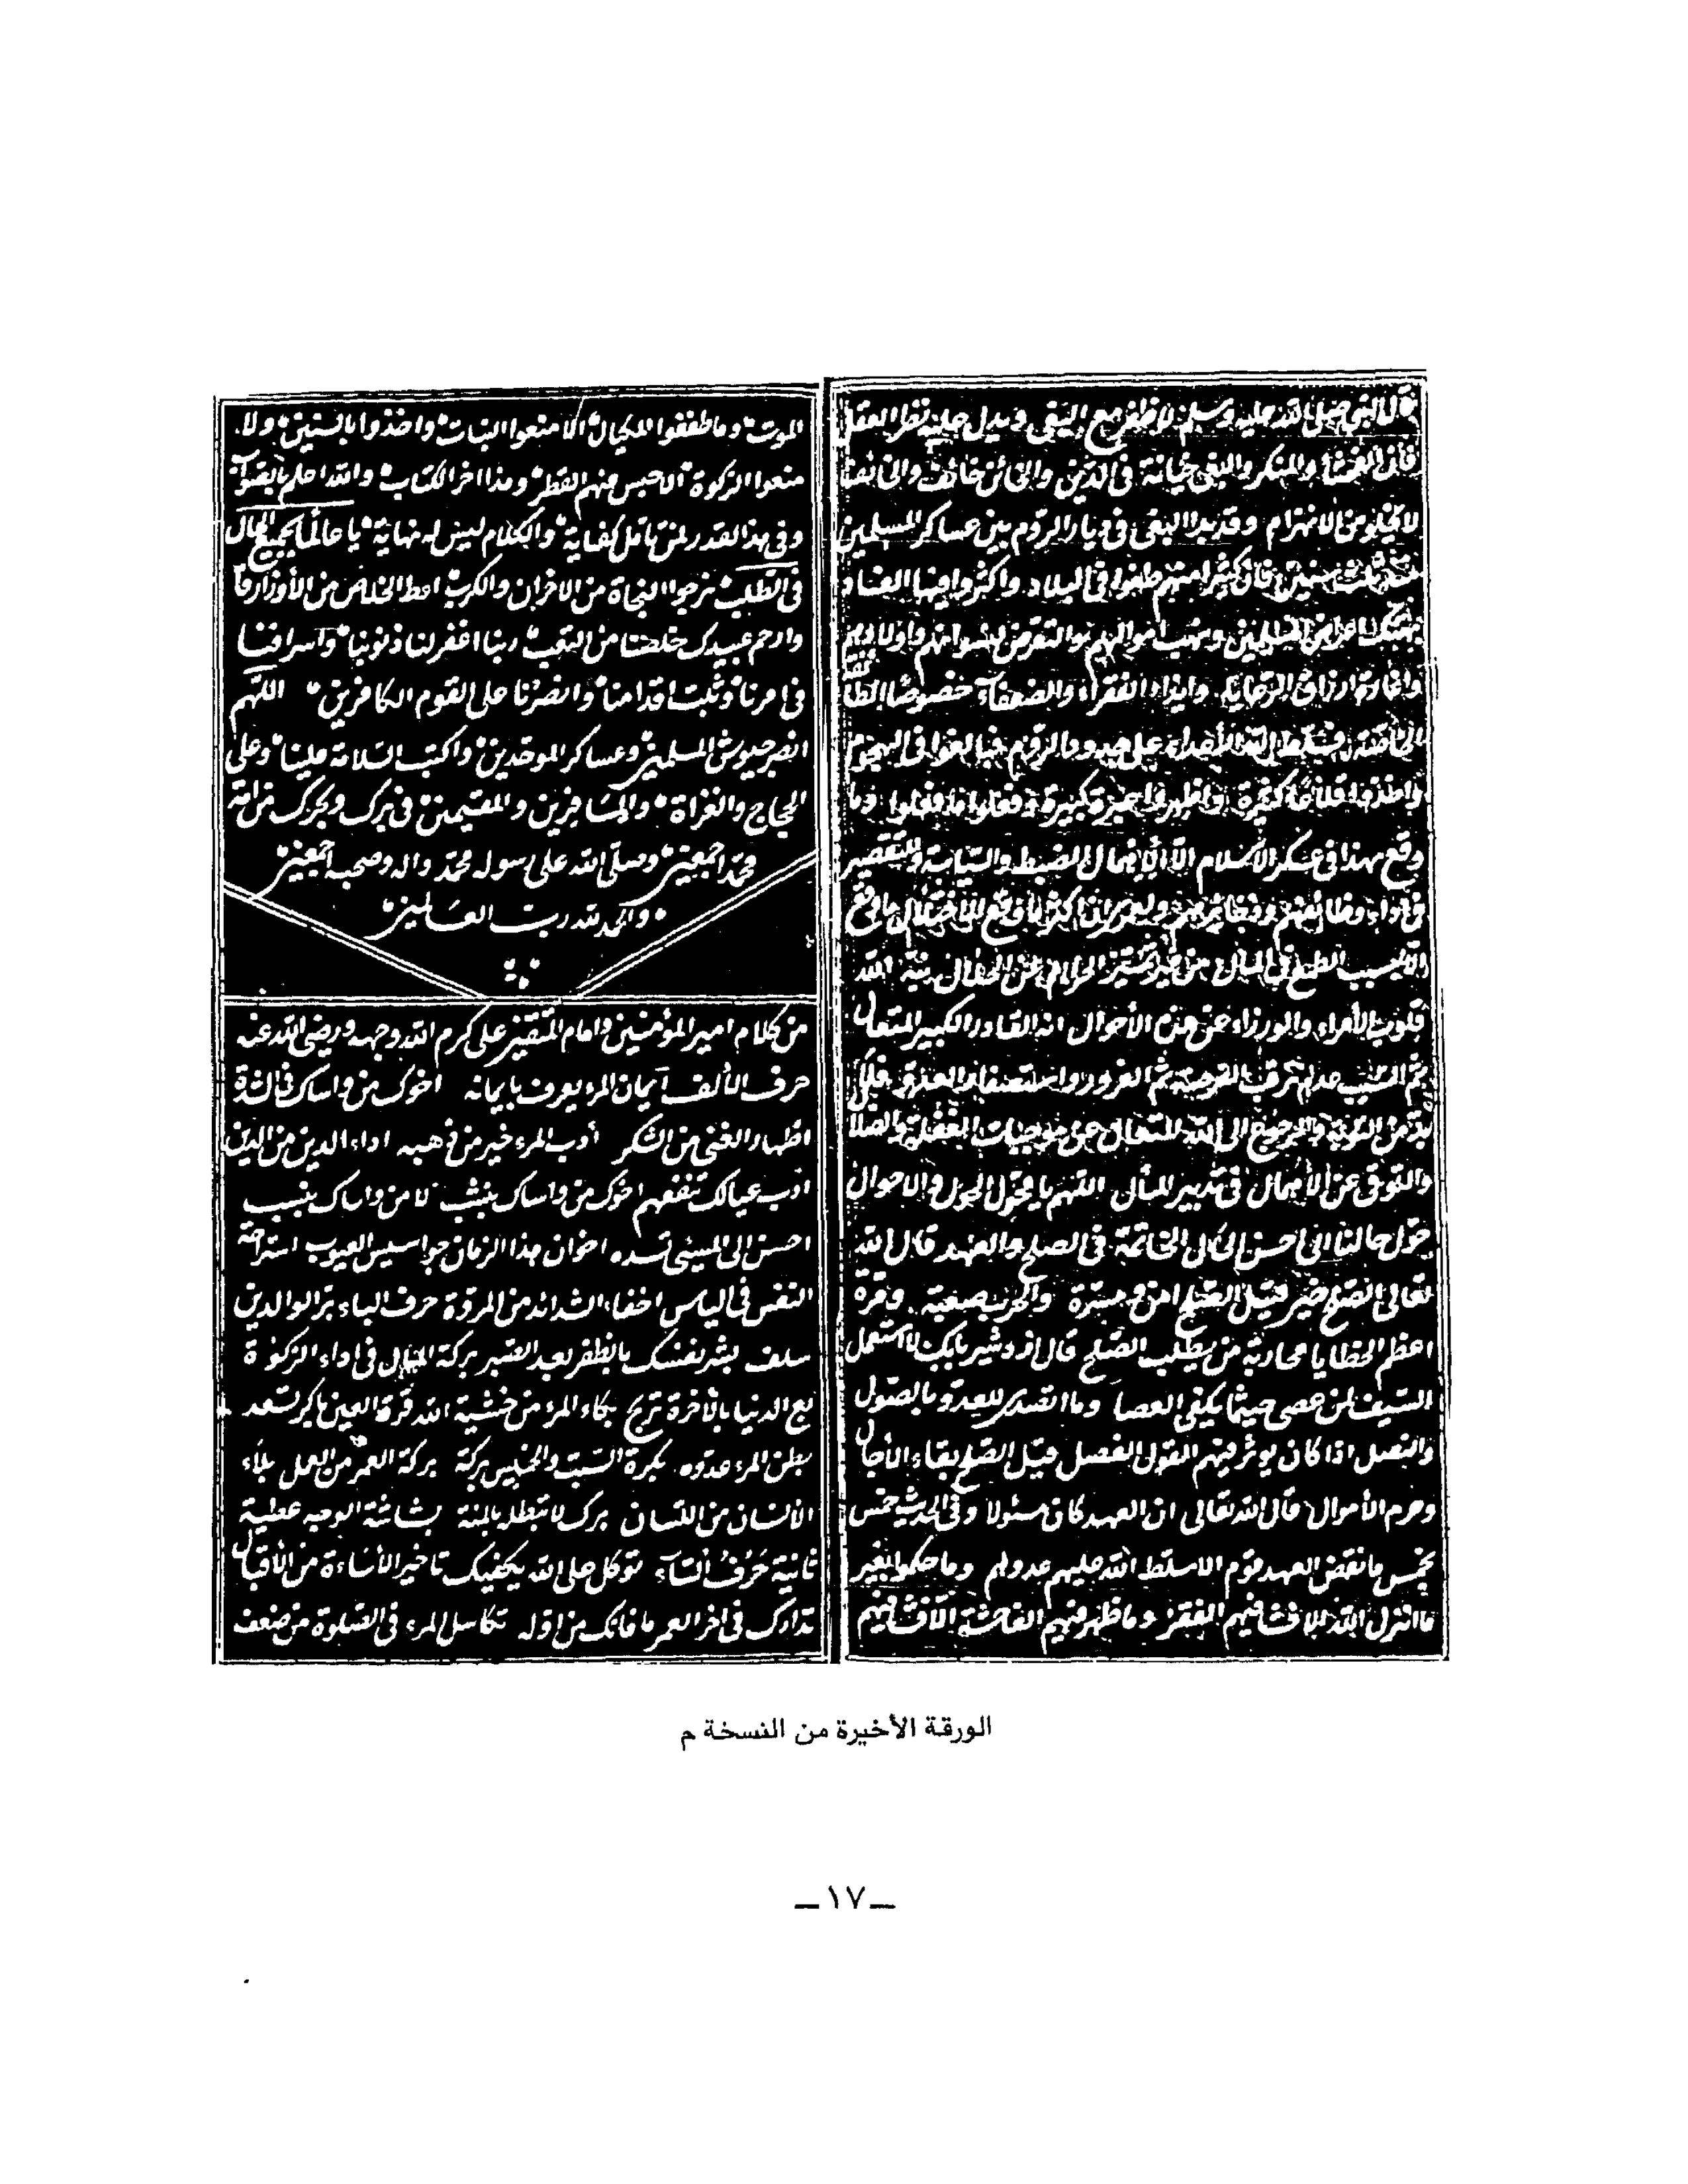 قال النبي صلى الله عليه وسلم لا ظفر مع البغي ويدل عليه نظر العقل
فان الفحشا والمنكر والبغي خيانة في الدين والخائن خائف والخائف
لا يخلو من الانهزام وقد بدا البغي في ديار الروم بين عساكر المسلمين
فان كثيرا منهم طغوا في البلاد واكثروا فيها الفساد
المسلمين ونهب اموالهم والتعرض لنسوانهم واولادهم
وغارة ارزاق الرعايا وايذاء الفقراء والضعفاء خصوصا الطا
فسلط الله الأعداء على حدود الروم فبالغوا في الهجوم
واخذوا قلاعا كثيرة واظهروا كبيرة وفعلوا ما فعلوا وما
وقع هذا في عسكر الاسلام الا لاهمال الضبط والسياسة والتقصير
في اداء وظائفهم ولعمري ان اكثر ما وقع الاختلال ما وقع
الا بسبب الطمع في المال من غير تمييز الحرام من الحلال نبه الله
قلوب الأمراء والوزراء عن هذه الأحوال انه القادر الكبير المتعال
ثم السبب عدم ترقب الفرصة ثم الغرور واستصغار العدو فلا
بد من التوبة والرجوع الى الله المتعال عن موجبات الغفلة والضلا
والتوقي عن الأهمال في تدبير المآل اللهم يا محول الحول والاحوال
حول حالنا الى احسن الحال الخاتمة في الصلح والعهد قال الله
تعالى والصلح خير قيل الصلح امن ومسرة والحرب صعبة ومرة
اعظم الخطايا محاربة من يطلب الصلح قال ازدشير بابك لا استعمل
السيف لمن عصى حيثما يكفي العصا وما اتصدى للعدو بالصول
والنصل اذا كان يوثر فيهم القول الفصل قيل الصلح بقاء الأجال
وحرم الأموال قال الله تعالى ان العهد كان مسئولا وفي الحديث خمس
بخمس ما نقض العهد قوم الا سلط الله عليهم عدوهم وما حكموا بغير
ما انزل الله الا فشا فيهم الفقر وما ظهر فيهم الفاحشة الا فشا فيهم
الموت وما طففوا المكيال الا منعوا النبات واخذوا بالسنين ولا
منعوا الزكوة الا حبس منهم القطر وهذا اخر الكتاب والله اعلم بالصواب
وفي هذا القدر لمن تأمل كفاية والكلام ليس له نهاية يا عالما بجميع الحال
في الطلب نرجوا النجاة من الاحزان والكرب اعط الخلاص من الأوزار
وارحم عبيدك خلصنا من التعب ربنا اغفر لنا ذنوبنا واسرافنا
في امرنا وثبت اقدامنا وانصرنا على القوم الكافرين اللهم
انصر جيوش المسلمين وعساكر الموحدين واكتب السلامة علينا وعلى
الحجاج والغزاة والمسافرين والمقيمين في برك وبحرك من امة
محمد اجمعين وصلى الله على رسوله محمد واله وصحبه اجمعين
والحمد لله رب العالمين
من كلام امير المؤمنين وامام المتقين علي كرم الله وجهه ورضي الله عنه
حرف الألف ايمان المرء يعرف بايمانه اخوك من واساك في الشدة
اظهار الغنى من الشكر أدب المرء خير من ذهبه اداء الدين من الدين
أدب عيالك تنفعهم اخوك من واساك بنشب لا من واساك بنسب
احسن الى المسيئ تسده اخوان هذا الزمان جواسيس العيوب استراحة
النفس في الياس اخفاء الشدائد من المروة حرف الباء بر الوالدين
سلف بشر نفسك بالظفر بعد الصبر بركة المال في اداء الزكوة
بع الدنيا بالأخرة تربح بكاء المرء من خشية الله قرة العين باكر تسعد
بطن المرء عدوه بكرة السبت والخميس بركة بركة العمر من العمل بلاء
الانسان من اللسان برك لا تبطله بالمنة بشاشة الوجه عطية
ثانية حرف التاء توكل على الله يكفيك تأخير الأساءة من الأقبال
تدارك في اخر العمر ما فاتك من اوله تكاسل المرء في الصلوة من ضعف
الورقة الأخيرة من النسخة م
ــ ١٧ ــ